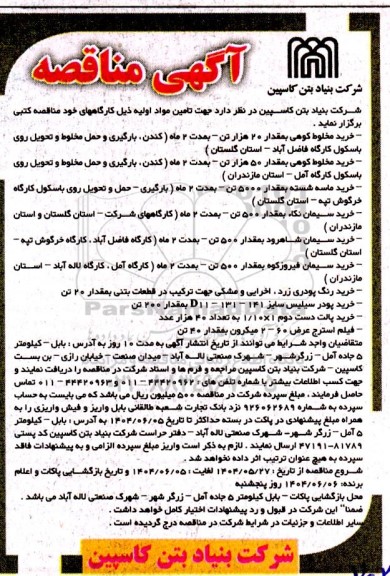 شرکت بنیاد بتن کاسپین
آگهی مناقصه
شرکت بنیاد بتن کاسپین در نظر دارد جهت تامین مواد اولیه ذیل کارگاههای خود مناقصه کتبی
برگزار نماید .
– خرید مخلوط کوهی بمقدار ۲۰ هزار تن – بمدت ۲ ماه ( کندن ، بارگیری و حمل مخلوط و تحویل روی
باسکول کارگاه فاضل آباد – استان گلستان )
– خرید مخلوط کوهی بمقدار ۵۰ هزار تن – بمدت ۲ ماه ( کندن ، بارگیری و حمل مخلوط و تحویل روی
باسکول کارگاه آمل – استان مازندران )
– خرید ماسه شسته بمقدار ۵۰۰۰ تن – بمدت ۲ ماه ( بارگیری – حمل و تحویل روی باسکول کارگاه
خرگوش تپه – استان گلستان )
– خرید سیمان نکاء بمقدار ۵۰۰ تن – بمدت ۲ ماه ( کارگاههای شرکت – استان گلستان و استان
مازندران )
– خرید سیمان شاهرود بمقدار ۵۰۰ تن – بمدت ۲ ماه ( کارگاه فاضل آباد ، کارگاه خرگوش تپه –
استان گلستان )
– خرید سیمان فیروزکوه بمقدار ۵۰۰ تن – بمدت ۲ ماه ( کارگاه آمل ، کارگاه لاله آباد – استان
مازندران )
– خرید رنگ پودری زرد ، اخرایی و مشکی جهت ترکیب در قطعات بتنی بمقدار ۲۰ تن
– خرید پودر سیلیس سایز ۱۴۱ – ۱۳۱ – D11 بمقدار ۲۰۰ تن
– خرید پالت دست دوم ۱×۱/۱۰ به تعداد ۴۰ هزار عدد
– فیلم استرج عرض ۶۰ – ۲ میکرون بمقدار ۴۰ تن
متقاضیان واجد شرایط می توانند از تاریخ انتشار آگهی به مدت ۱۰ روز به آدرس : بابل – کیلومتر
۵ جاده آمل – زرگرشهر – شهرک صنعتی لاله آباد – میدان صنعت – خیابان رازی – بن بست
کاسپین – شرکت بنیاد بتن کاسپین مراجعه و فرم ها و اسناد شرکت در مناقصه را دریافت نمایند و
جهت کسب اطلاعات بیشتر با شماره تلفن های : ۴۴۴۲۰۹۶۲–۰۱۱ و ۴۴۴۲۰۹۶۳–۰۱۱ تماس
حاصل فرمایند . مبلغ سپرده شرکت در مناقصه ۵۰۰ میلیون ریال می باشد که می بایست به حساب
سپرده به شماره ۹۲۶۰۶۲۶۸۹ نزد بانک تجارت شعبه طالقانی بابل واریز و فیش واریزی را به
همراه مبلغ پیشنهادی در پاکت در بسته حداکثر تا تاریخ ۱۴۰۴/۰۶/۰۵ به آدرس : بابل – کیلومتر
۵ آمل – زرگر شهر – شهرک صنعتی لاله آباد – دفتر حراست شرکت بنیاد بتن کاسپین کد پستی
۸۱۷۸۹–۴۷۱۹۱ ارسال نمایند . لازم به ذکر است واریز مبلغ سپرده الزامی و به پیشنهادات فاقد
سپرده به هیچ عنوان ترتیب اثر داده نخواهد شد .
شروع مناقصه از تاریخ : ۱۴۰۴/۰۵/۲۷ لغایت : ۱۴۰۴/۰۶/۰۵ و تاریخ بازگشایی پاکات و اعلام
برنده: ۱۴۰۴/۰۶/۰۶ روز پنجشنبه
محل بازگشایی پاکات – بابل کیلومتر ۵ جاده آمل – زرگر شهر – شهرک صنعتی لاله آباد می باشد .
ضمنا" این شرکت در قبول و رد پیشنهادات اختیار کامل خواهد داشت .
سایر اطلاعات و جزئیات در شرایط شرکت در مناقصه درج گردیده است .
شرکت بنیاد بتن کاسپین